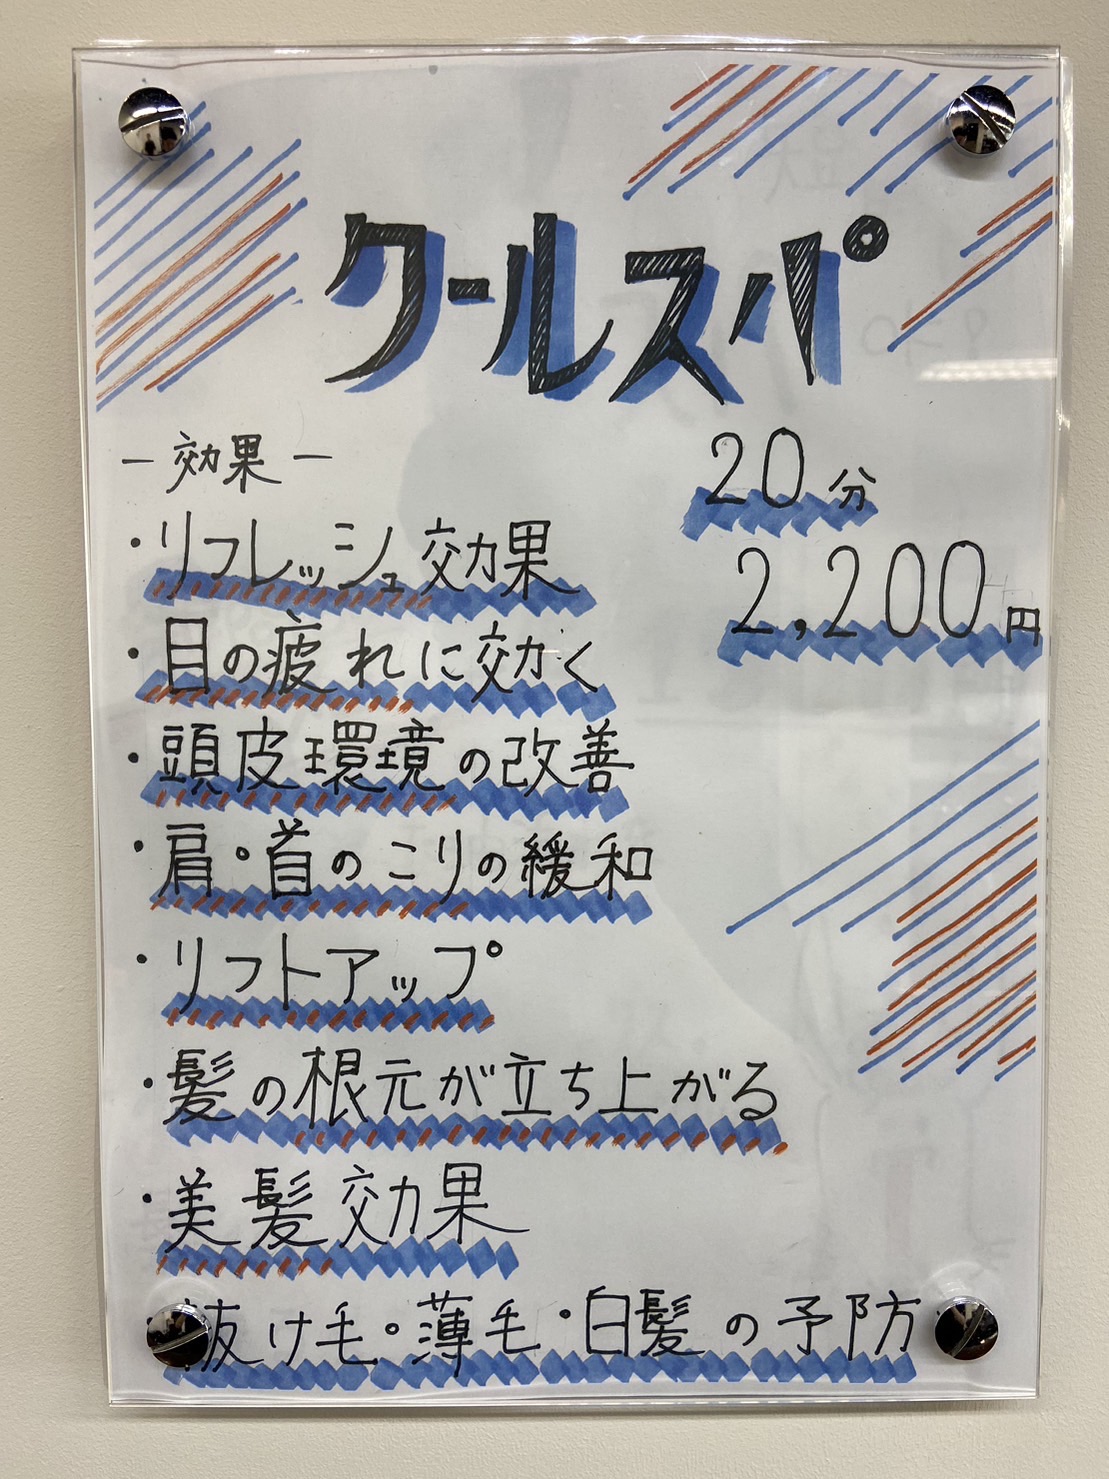 クールスパ
－効果－
20分
2,200円
・リフレッシュ効果
・目の疲れに効く
・頭皮環境の改善
・肩・首のこりの緩和
・リフトアップ
・髪の根元が立ち上がる
・美髪効果
抜け毛・薄毛・白髪の予防